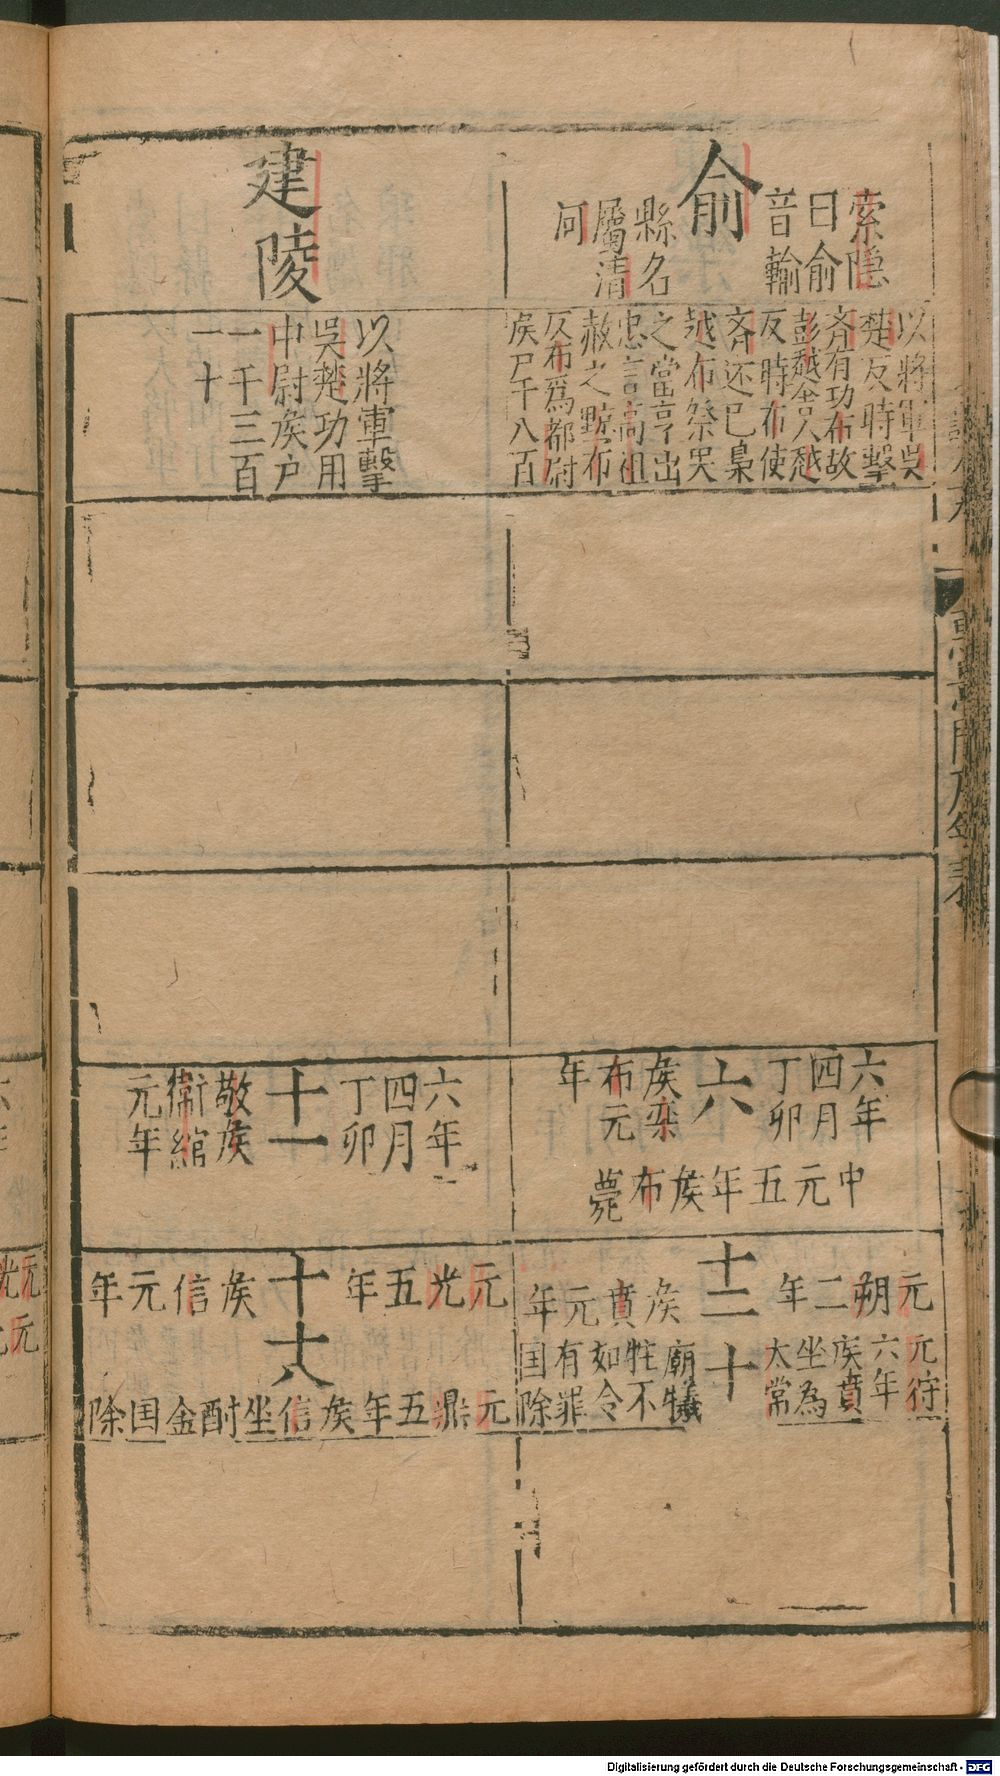 索隱
曰俞
音輸
俞
縣名
屬清
河
以將軍吳
楚反時擊
斉有功布故
彭越舍人越
反時布使
斉还已梟
越布祭哭
之當亨出
忠言高祖
赦之黥布
反布爲都尉
侯戸千八百
六年
四月
丁卯
六
侯栾
布元
年
中元五年侯布薨
元朔二年
十二
侯賁元年
十
元狩
六年
侯賁
坐為
太常
廟犧
牲不
如令
有罪
国除
建陵
以將軍擊
吳楚功用
中尉侯户
一千三百
一十
六年
四月
丁卯
十一
敬侯
衛綰
元年
元光五年
十八
侯信元年
元鼎五年侯信坐酎金国除
Digitalisierung gefördert durch die Deutsche Forschungsgemeinschaft - DFG